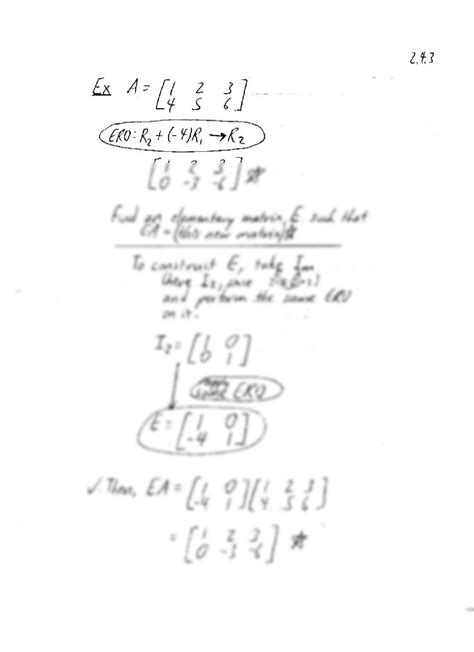 2.4.3
Ex A = [1 2 3
4 5 6]
ERO: R2 + (-4)R1 → R2
[1 2 3
0 -3 -6] ☆
Find an elementary matrix, E such that
EA = (this new matrix)☆
To construct E, take Im
(here I2, since
and perform the same ERO
on it.
I2 = [1 0
0 1]
same ERO
E = [1 0
-4 1]
✓ Then, EA = [1 0 [1 2 3
-4 1] 4 5 6]
= [1 2 3
0 -3 -6] ☆